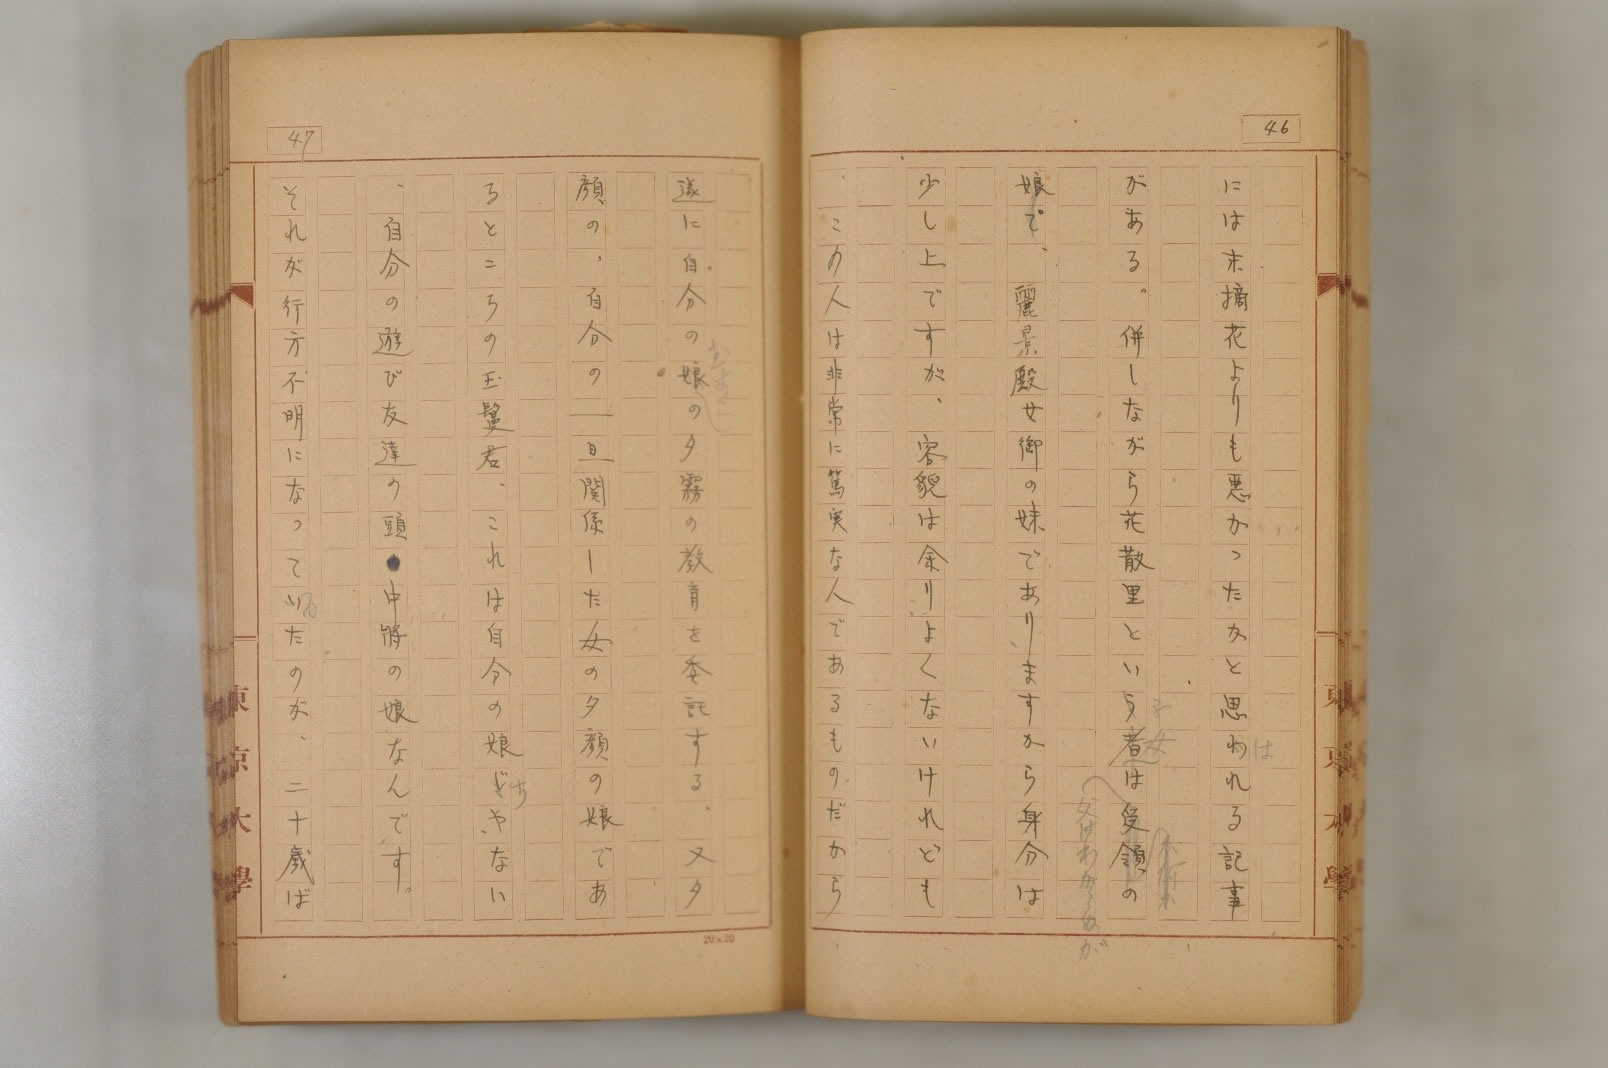 46
には末摘花よりも悪かったかと思われる記事
は
がある。併しながら花散里という者は受領の
女
父はわからぬが
娘で、麗景殿女御の妹でありますから身分は
少し上ですが、容貌は余りよくないけれども
、この人は非常に篤実な人であるものだから
東京大學
47
遂に自分の娘の夕霧の教育を委託する、又夕
顔の、自分の一旦関係した女の夕顔の娘であ
るところの玉鬘君、これは自分の娘ぢやない
ち
、自分の遊び友達の頭中將の娘なんです。
それが行方不明になっていたのが、二十歳ば
る
東京大學
20×20